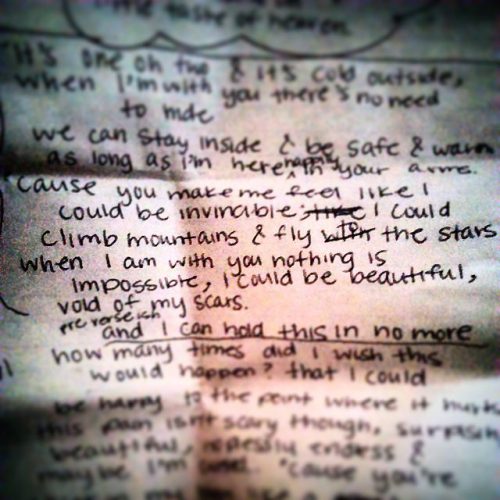 little taste of heaven
It's one oh two & it's cold outside,
when I'm with you there's no need
to hide
we can stay inside & be safe & warm
as long as i'm here happily in your arms.
'cause you make me feel like I
could be invincible, like I could
climb mountains & fly with to the stars
when I am with you nothing is
impossible, I could be beautiful,
void of my scars.
pre verse ish
and I can hold this in no more
how many times did I wish this
would happen? that I could
be happy to the point where it hurts
this pain isn't scary though,
beautiful, endless &
maybe I'm 'cause you're
my like a